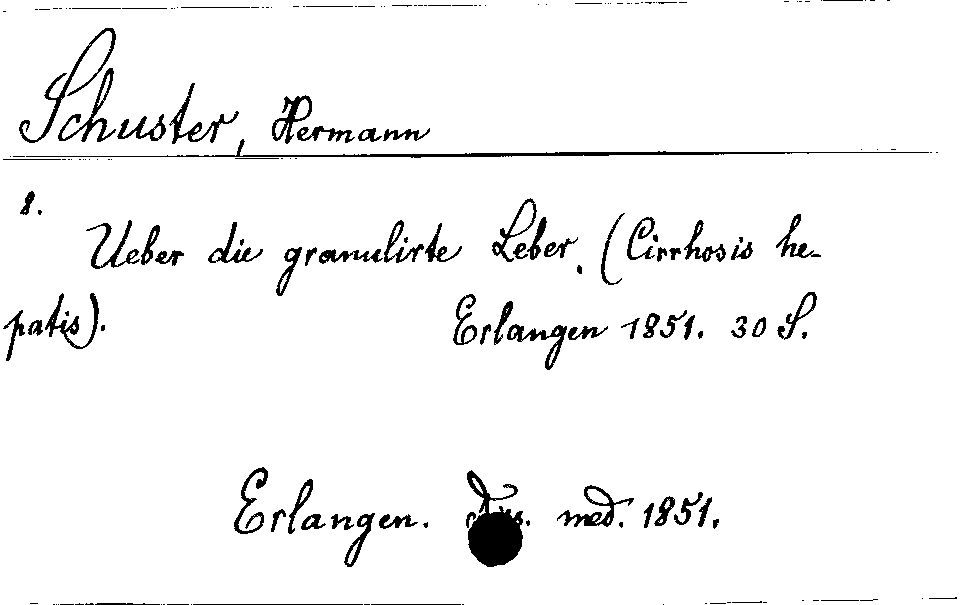 Schuster, Hermann
8.
Ueber die granulirte Leber. (Cirrhosis he-
patis).
Erlangen 1851. 30 S.
Erlangen. Diss. med. 1851.